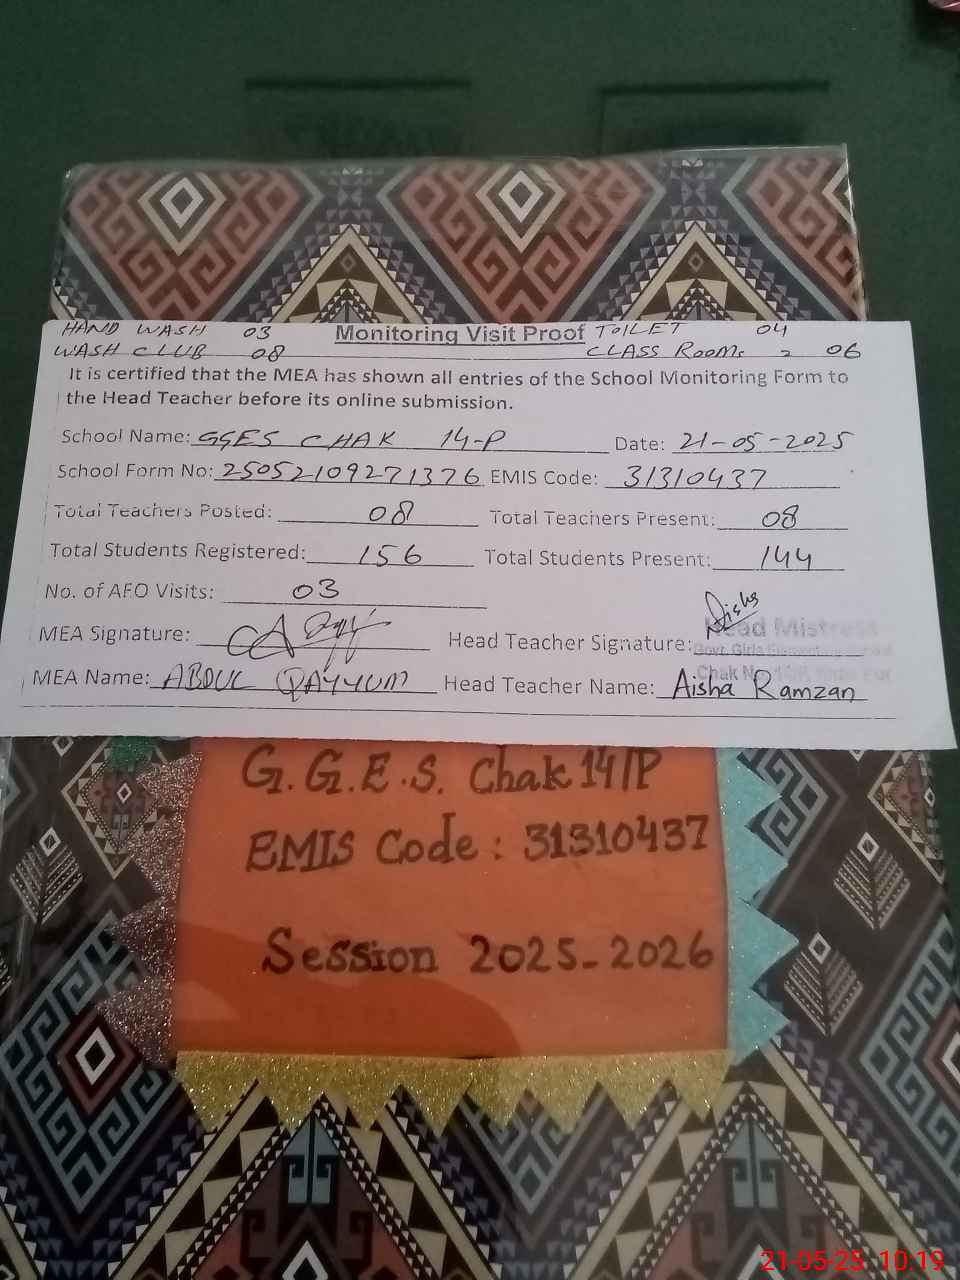 HAND WASH 03 Monitoring Visit Proof TOILET 04
WASH CLUB 08 CLASS ROOMs = 06
It is certified that the MEA has shown all entries of the School Monitoring Form to
the Head Teacher before its online submission.
School Name: GGES CHAK 14-P Date: 21-05-2025
School Form No: 25052109271376 EMIS Code: 31310437
Total Teachers Posted: 08 Total Teachers Present: 08
Total Students Registered: 156 Total Students Present: 144
No. of AFO Visits: 03
Aisha
Head Mistress
MEA Signature: Head Teacher Signature:
Govt. Girls Elementary School
Chak No.
MEA Name: ABDUL QAYYUM Head Teacher Name: Aisha Ramzan
G.G.E.S. Chak 14/P
EMIS Code: 31310437
Session 2025-2026
21-05-25 10:19